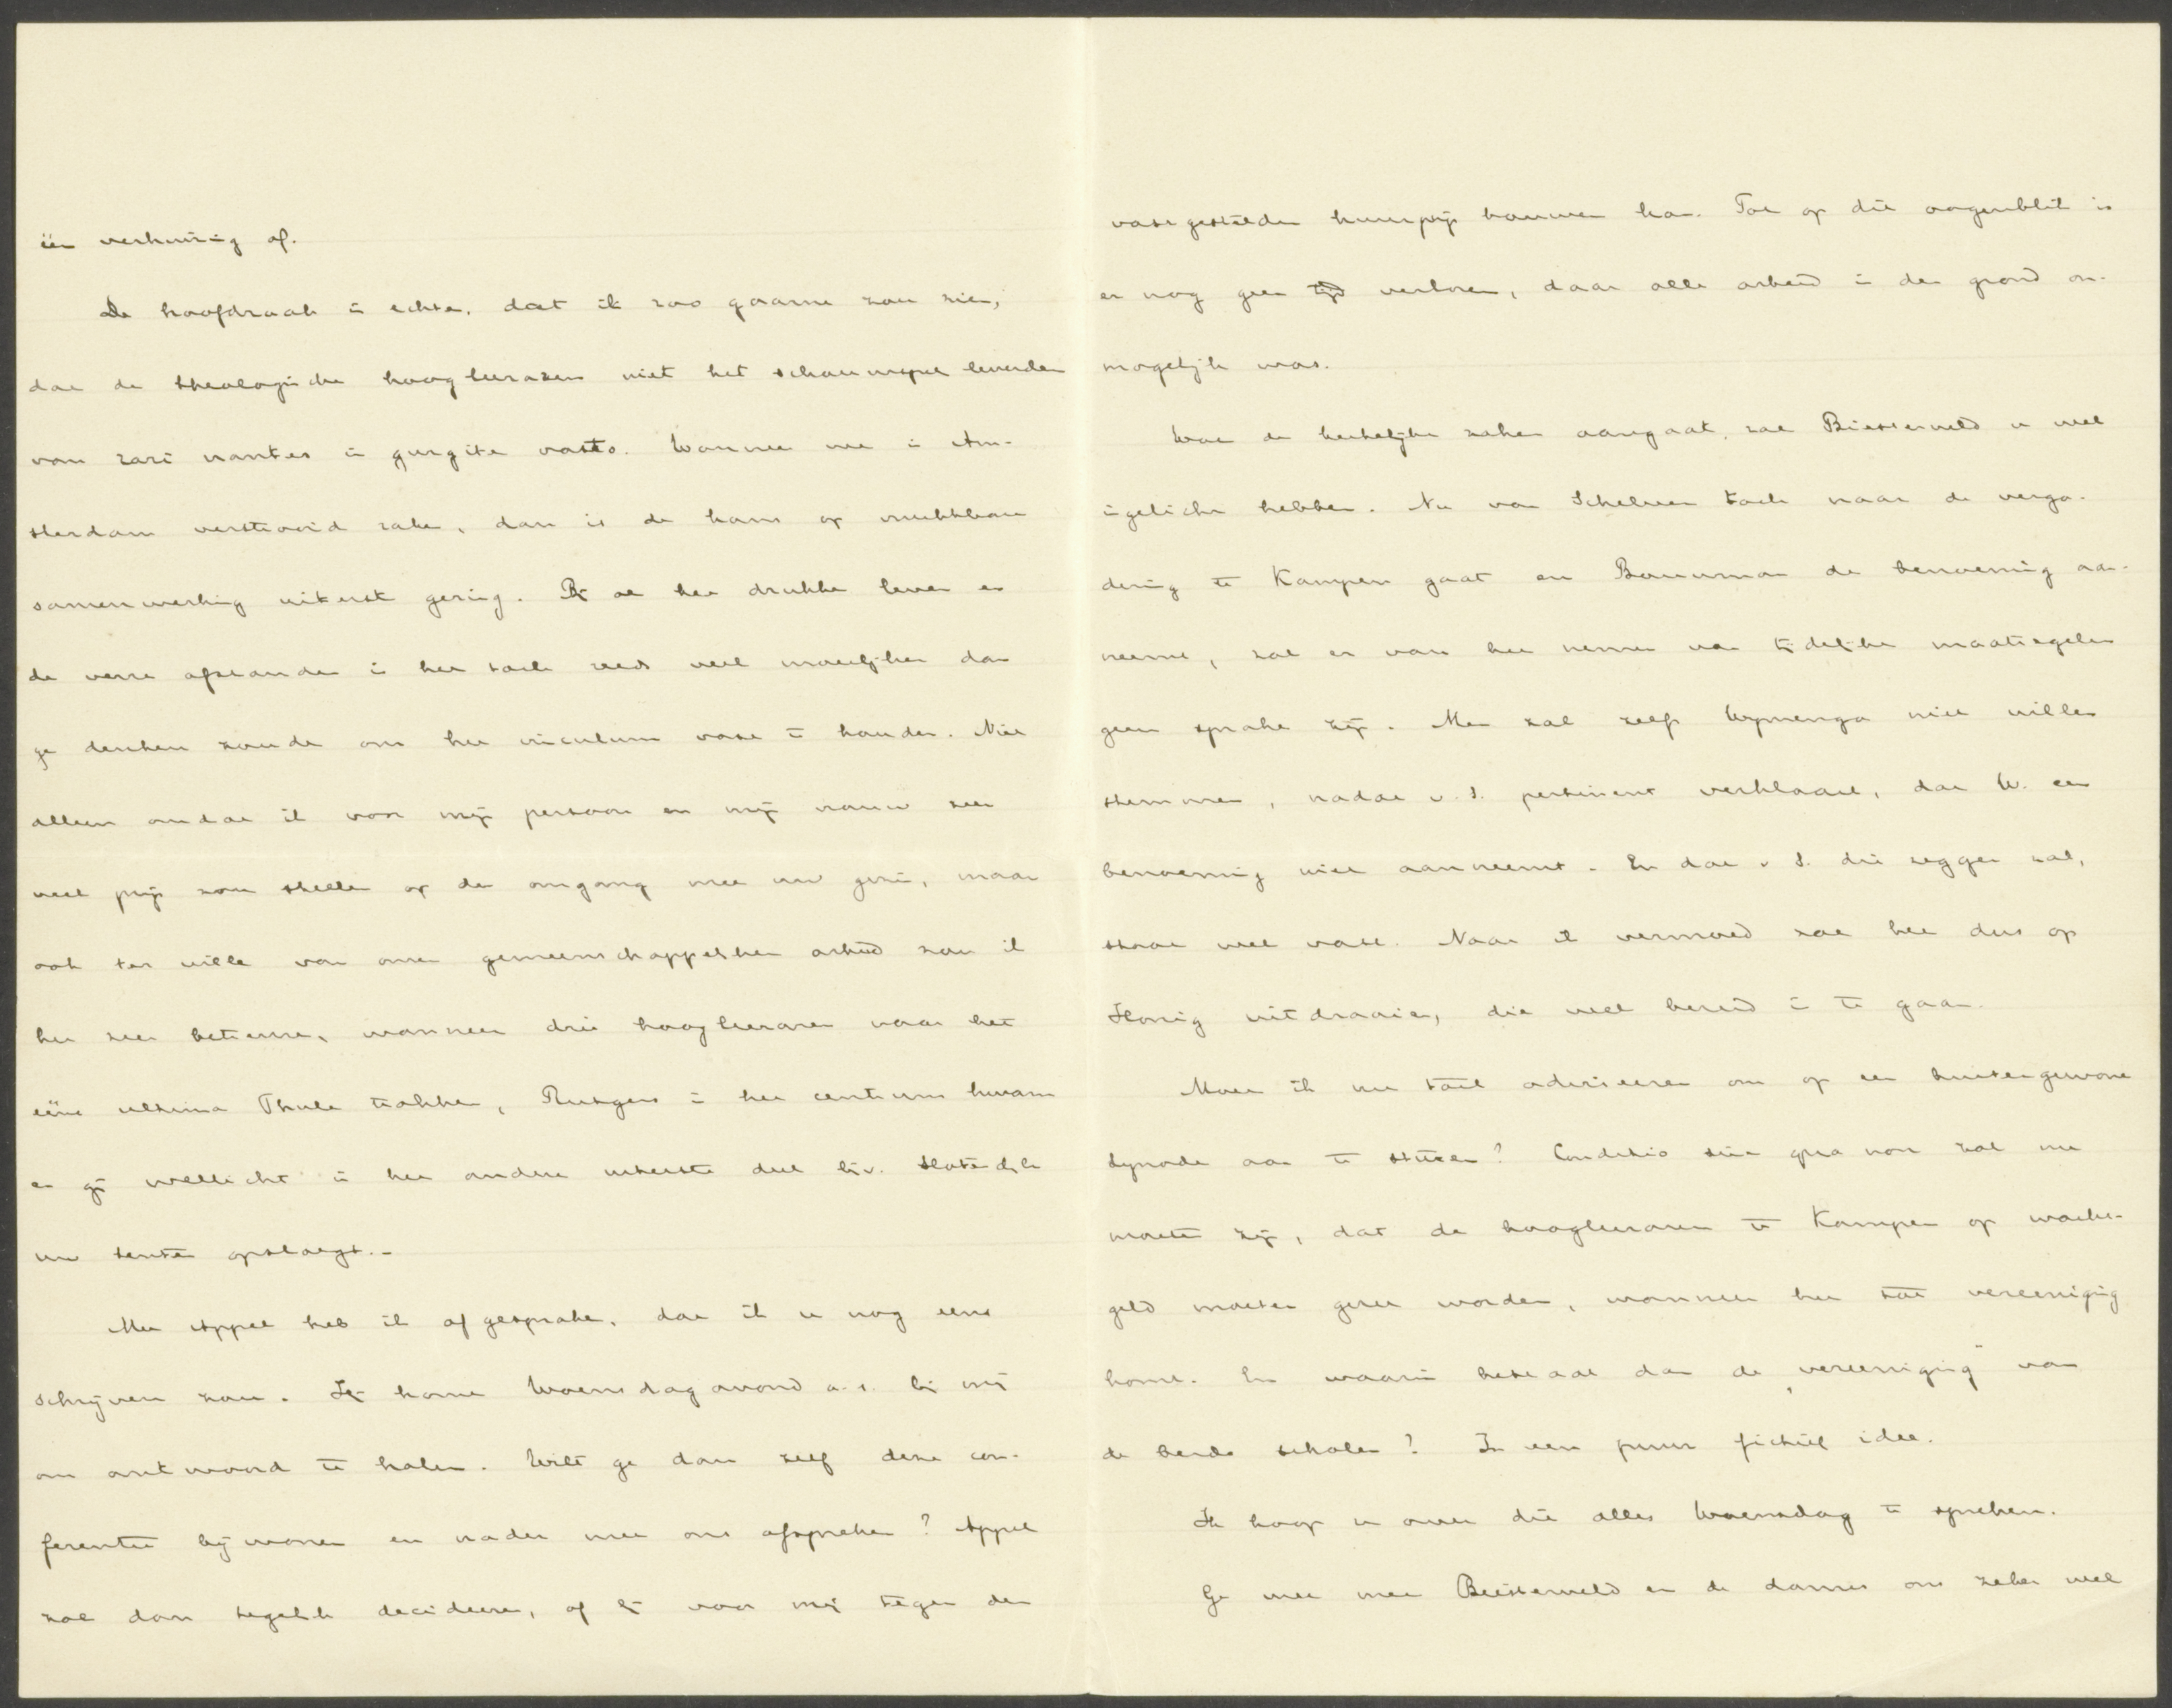 één verhuizing af.
De hoofdzaak is echter, dat ik zoo gaarne zou zien,
dat de theologische hoogleeraren niet het schouwspel leverden
van rari nantes in gurgite vasto. Wanneer we in Am-
sterdam verstrooid raken, dan is de kans op vruchtbare
samenwerking uiterst gering. Bij al het drukke leven en
de verre afstanden is het toch reeds veel moeilijker dan
ge denken zoudt om het vinculum vast te houden. Niet
alleen omdat ik voor mijn persoon en mijn vrouw zeer
veel prijs zou stellen op den omgang met uw gezin, maar
ook ter wille van onzen gemeenschappelijken arbeid zou ik
het zeer betreuren, wanneer drie hoogleeraren naar het
eéne ultima Thule trokken, Rutgers in het centrum kwam
en gij wellicht in het andere uiterste deel bij v. Sloterdijk
uw tenten opsloegt.-
Met Appel heb ik afgesproken, dat ik u nog eens
schrijven zou. Hij komt Woensdagavond a.s. bij mij
om antwoord te halen. Wilt ge dan zelf deze con-
ferentie bijwonen en nader met ons afspreken? Appel
zal dan tegelijk decideeren, of hij voor mij tegen den
vastgestelden huurprijs bouwen kan. Tot op dit oogenblik is
er nog geen tijd verloren, daar alle arbeid in den grond on-
mogelijk was.
Wat de kerkelijke zaken aangaat, zal Biesterveld u wel
ingelicht hebben. Nu van Schelven toch naar de verga-
dering te Kampen gaat en Bouwman de benoeming aan-
neemt, zal er van het nemen van tijdelijke maatregelen
geen sprake zijn. Men zal zelfs Wymenga niet willen
stemmen, nadat v. S. pertinent verklaart, dat W. een
benoeming niet aanneemt. En dat v S. dit zeggen zal,
staat wel vast. Naar ik vermoed zal het dus op
Honig uitdraaien, die wel bereid is te gaan.
Moet ik nu toch adviseeren om op een buitengewone
Synode aan te sturen? Conditio sine qua non zal nu
moeten zijn, dat de hoogleeraren te Kampen op wacht-
geld moeten gezet worden, wanneer het tot vereeniging
komt. En waarin bestaat dan de „vereeniging" van
de beide scholen? In een puur fictief idee.
Ik hoop u over dit alles Woensdag te spreken.
Ge moet met Biesterveld en de dames ons zeker wel